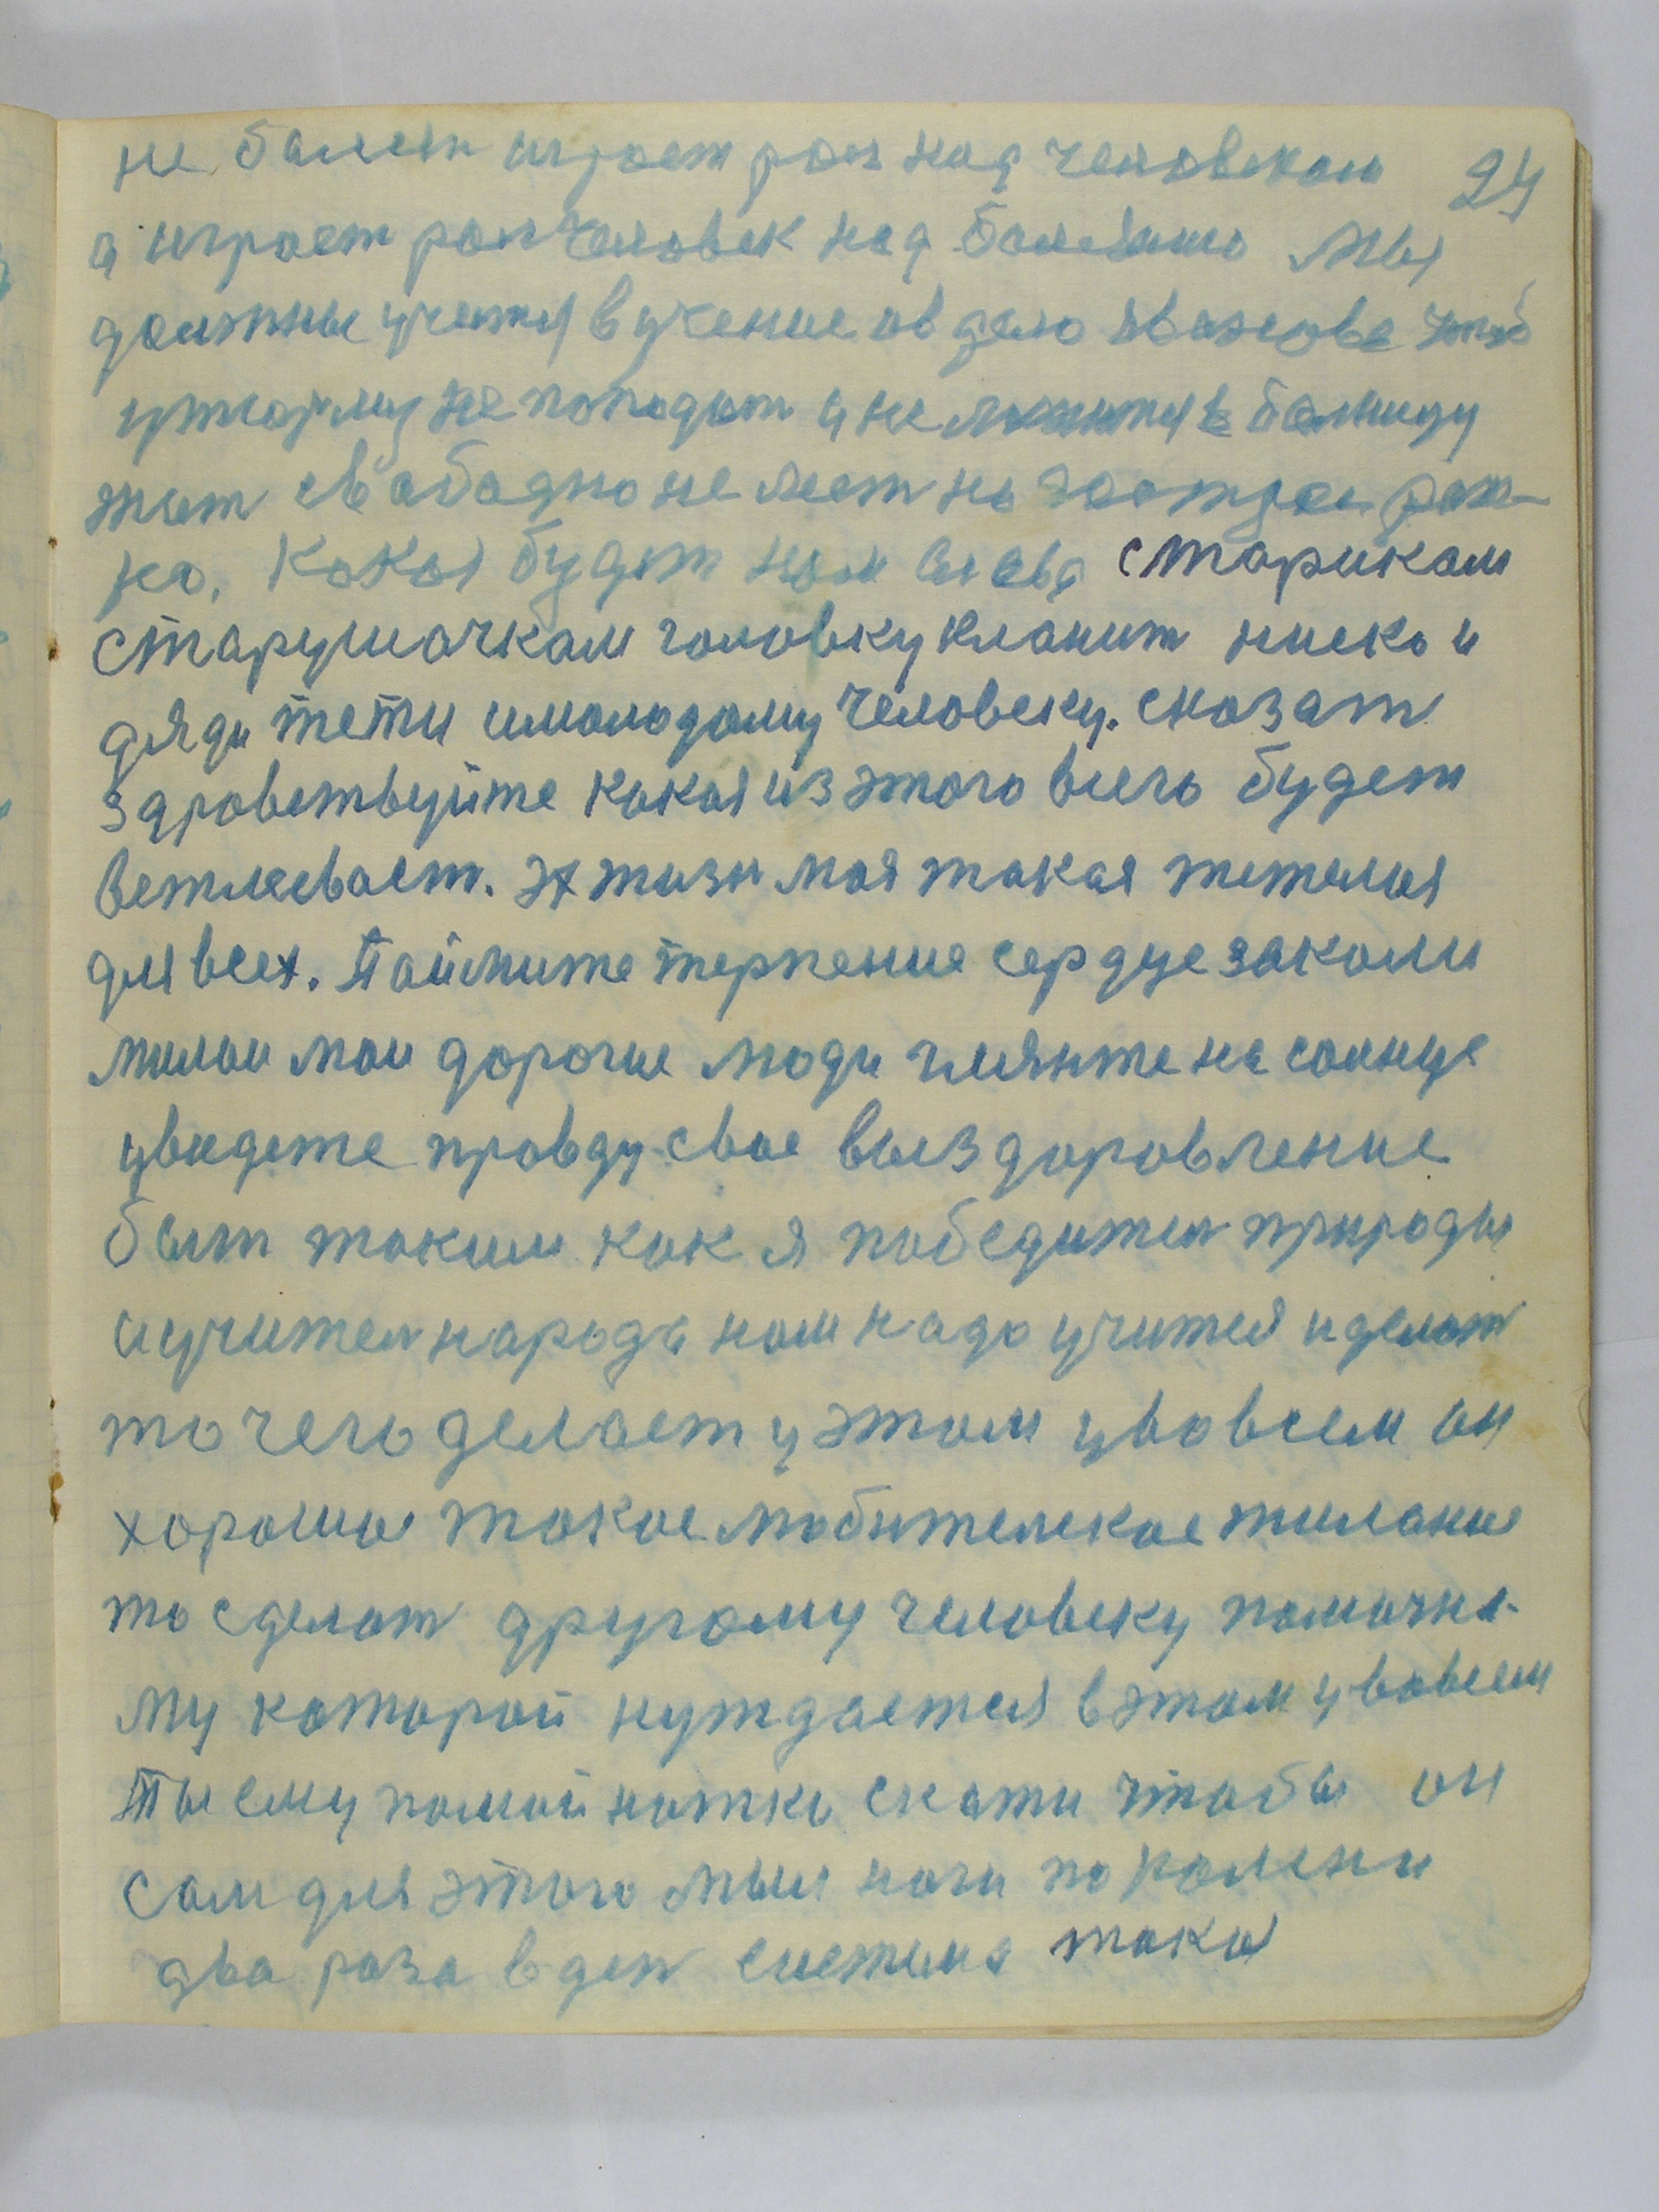 не болезн играет рол над человеком 24
а играет рол человек над болезню мы
должны учится в учение ов дело Иванова чтоб
у тюрму не попадат и не ложится в болницу
жит свабадно не лезт на
ка. Какая будет нам слава старикам
старушачкам головку кланит ниско и
дяди тети и молодому человеку. сказат
здравствуйте какая из этого всего будет
жизн моя такая тежолая
для всех. Поймите терпение сердце закали
милаи маи дорогие люди гляняте на солнце
увидете правду свое выездоровление
быт таким как я победител природы
и учител народа нам надо учится и делат
то чего делает у этом уво всем он
хорошие такое любителское жилание
то сделат другому человеку
му каторай нуждается в этом уво всем
Ты ему помой скажи чтобы он
сам для этого мыл ноги по колени
два раза в ден система такая